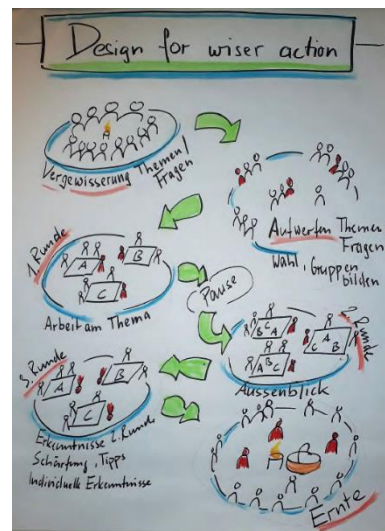 Design for wiser action
Vergewisserung Themen/
Fragen
Aufwerfen Themen
Fragen
Wahl, Gruppen
bilden
1. Runde
A
B
C
Arbeit am Thema
Pause
2. Runde
B C A
C A B
A B C
Aussenblick
3. Runde
A
B
C
Erkenntnisse 2. Runde
Schärfung, Tipps
Individuelle Erkenntnisse
Ernte